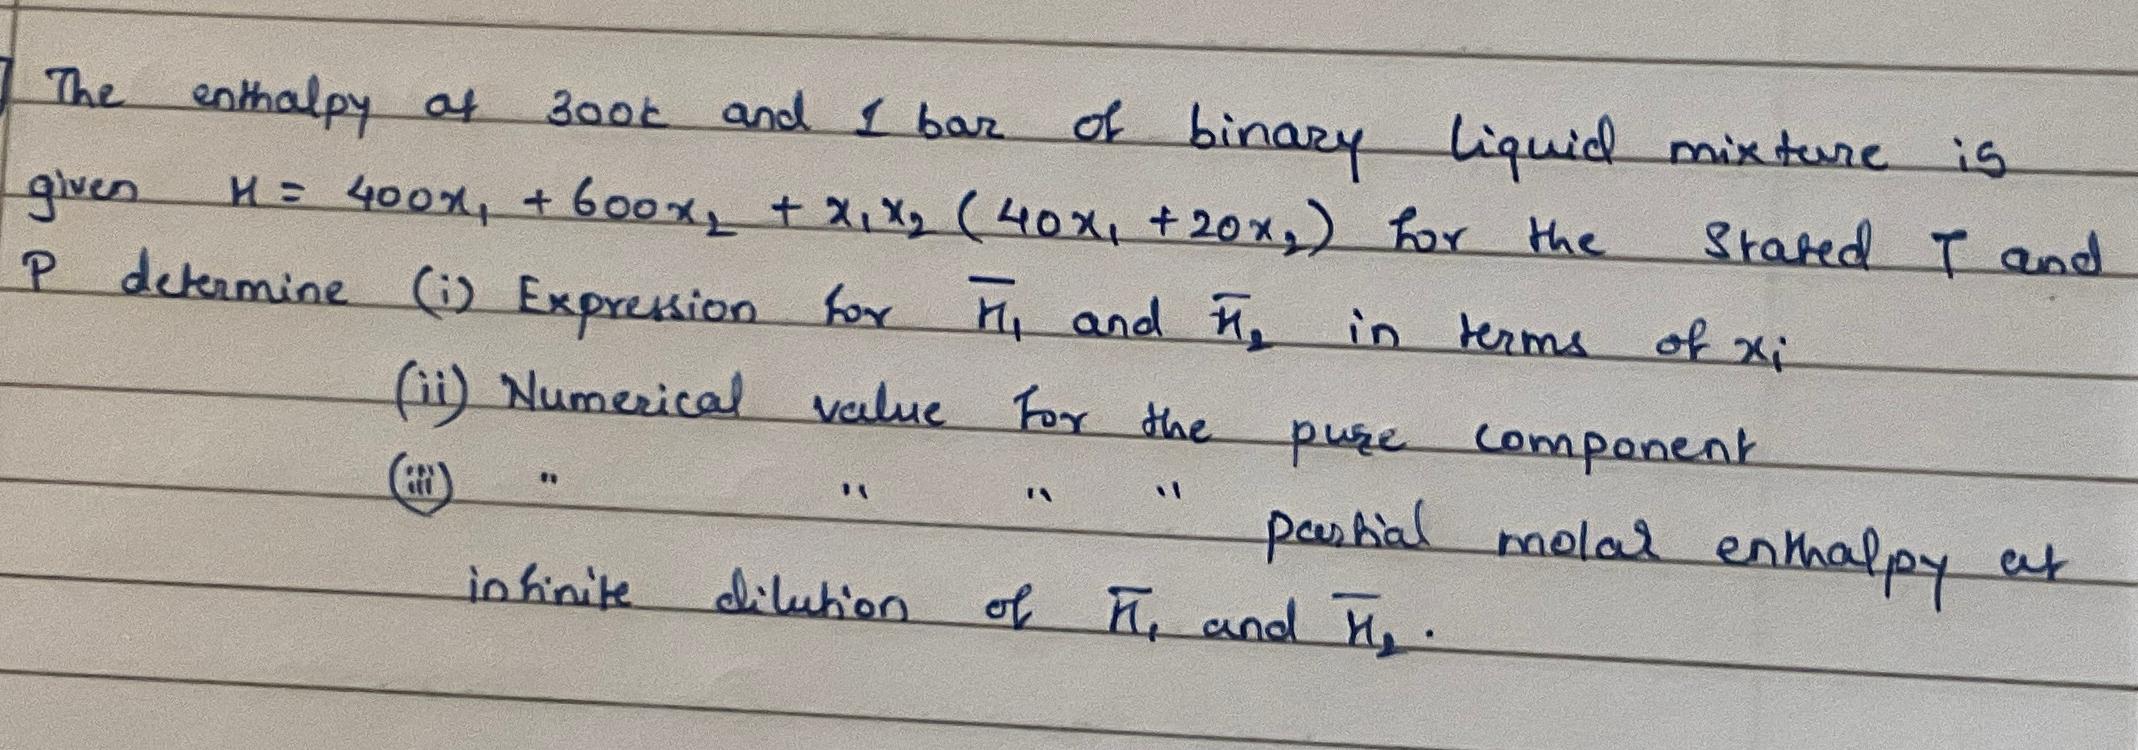 The enthalpy at 300k and 1 bar of binary liquid mixture is
given H = 400x₁ + 600x₂ + x₁x₂ (40x₁ + 20x₂) for the Stated T and
P determine (i) Expression for H̅₁ and H̅₂ in terms of xᵢ
(ii) Numerical value For the pure component
(iii) " " " " partial molar enthalpy at
infinite dilution of H̅₁ and H̅₂.